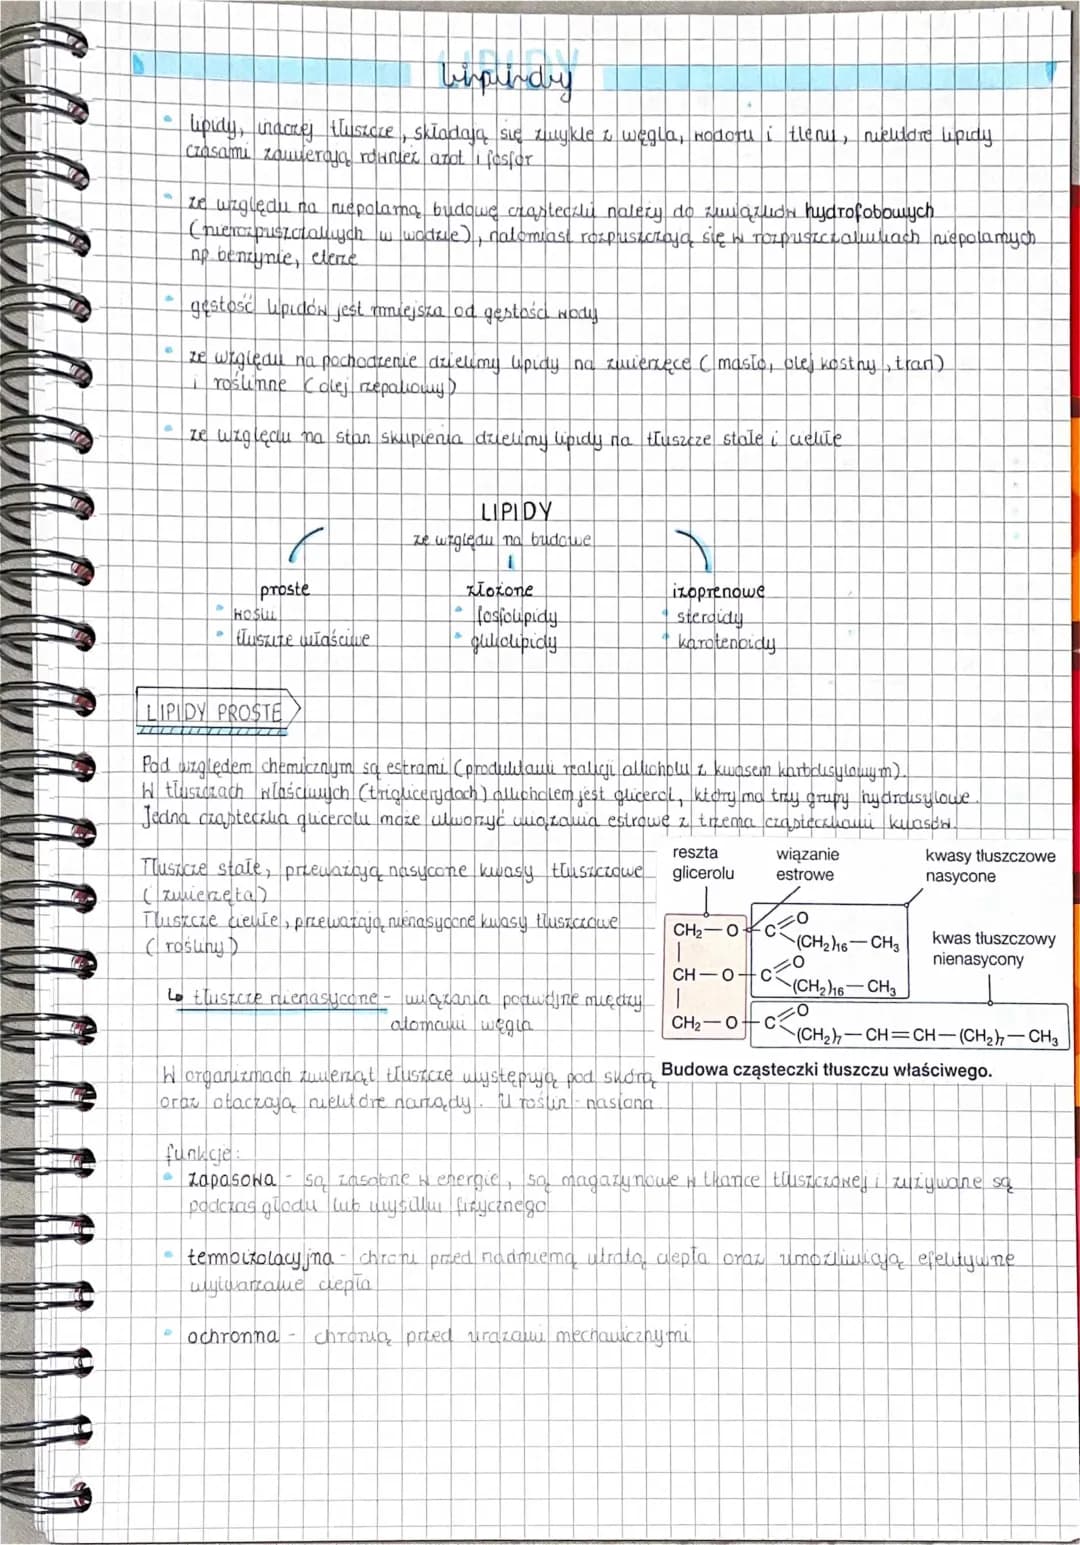 lipidy
lipidy, inaczej tłuszcze, składają się zwykle z węgla, wodoru i tlenu, niektóre lipidy
czasami zawierają również azot i fosfor
ze względu na niepolarną budowę cząsteczki należy do związków hydrofobowych
(nierozpuszczalnych w wodzie), natomiast rozpuszczają się w rozpuszczalnikach niepolarnych
np. benzynie, eterze
gęstość lipidów jest mniejsza od gęstości wody
ze względu na pochodzenie dzielimy lipidy na zwierzęce (masło, olej kostny, tran)
i roślinne (olej rzepakowy)
ze względu na stan skupienia dzielimy lipidy na tłuszcze stałe i ciekłe
LIPIDY
ze względu na budowę
proste złożone izoprenowe
woski fosfolipidy steroidy
tłuszcze właściwe glikolipidy karotenoidy
LIPIDY PROSTE
Pod względem chemicznym są estrami (produktami reakcji alkoholu z kwasem karboksylowym).
W tłuszczach właściwych (triglicerydach) alkoholem jest glicerol, który ma trzy grupy hydroksylowe.
Jedna cząsteczka glicerolu może utworzyć wiązania estrowe z trzema cząsteczkami kwasów.
Tłuszcze stałe, przeważają nasycone kwasy tłuszczowe
(zwierzęta)
Tłuszcze ciekłe, przeważają nienasycone kwasy tłuszczowe
(rośliny)
↳ tłuszcze nienasycone - wiązania podwójne między
atomami węgla
reszta wiązanie kwasy tłuszczowe
glicerolu estrowe nasycone
CH₂—O—C=O
(CH₂)₁₆—CH₃
kwas tłuszczowy
nienasycony
CH—O—C=O
(CH₂)₁₆—CH₃
CH₂—O—C=O
(CH₂)₇—CH=CH—(CH₂)₇—CH₃
Budowa cząsteczki tłuszczu właściwego.
W organizmach zwierząt tłuszcze występują pod skórą
oraz otaczają niektóre narządy. U roślin - nasiona.
funkcje:
zapasowa - są zasobne w energię, są magazynowe w tkance tłuszczowej i zużywane są
podczas głodu lub wysiłku fizycznego
termoizolacyjna - chroni przed nadmierną utratą ciepła oraz umożliwiają efektywne
wytwarzanie ciepła
ochronna - chronią przed urazami mechanicznymi